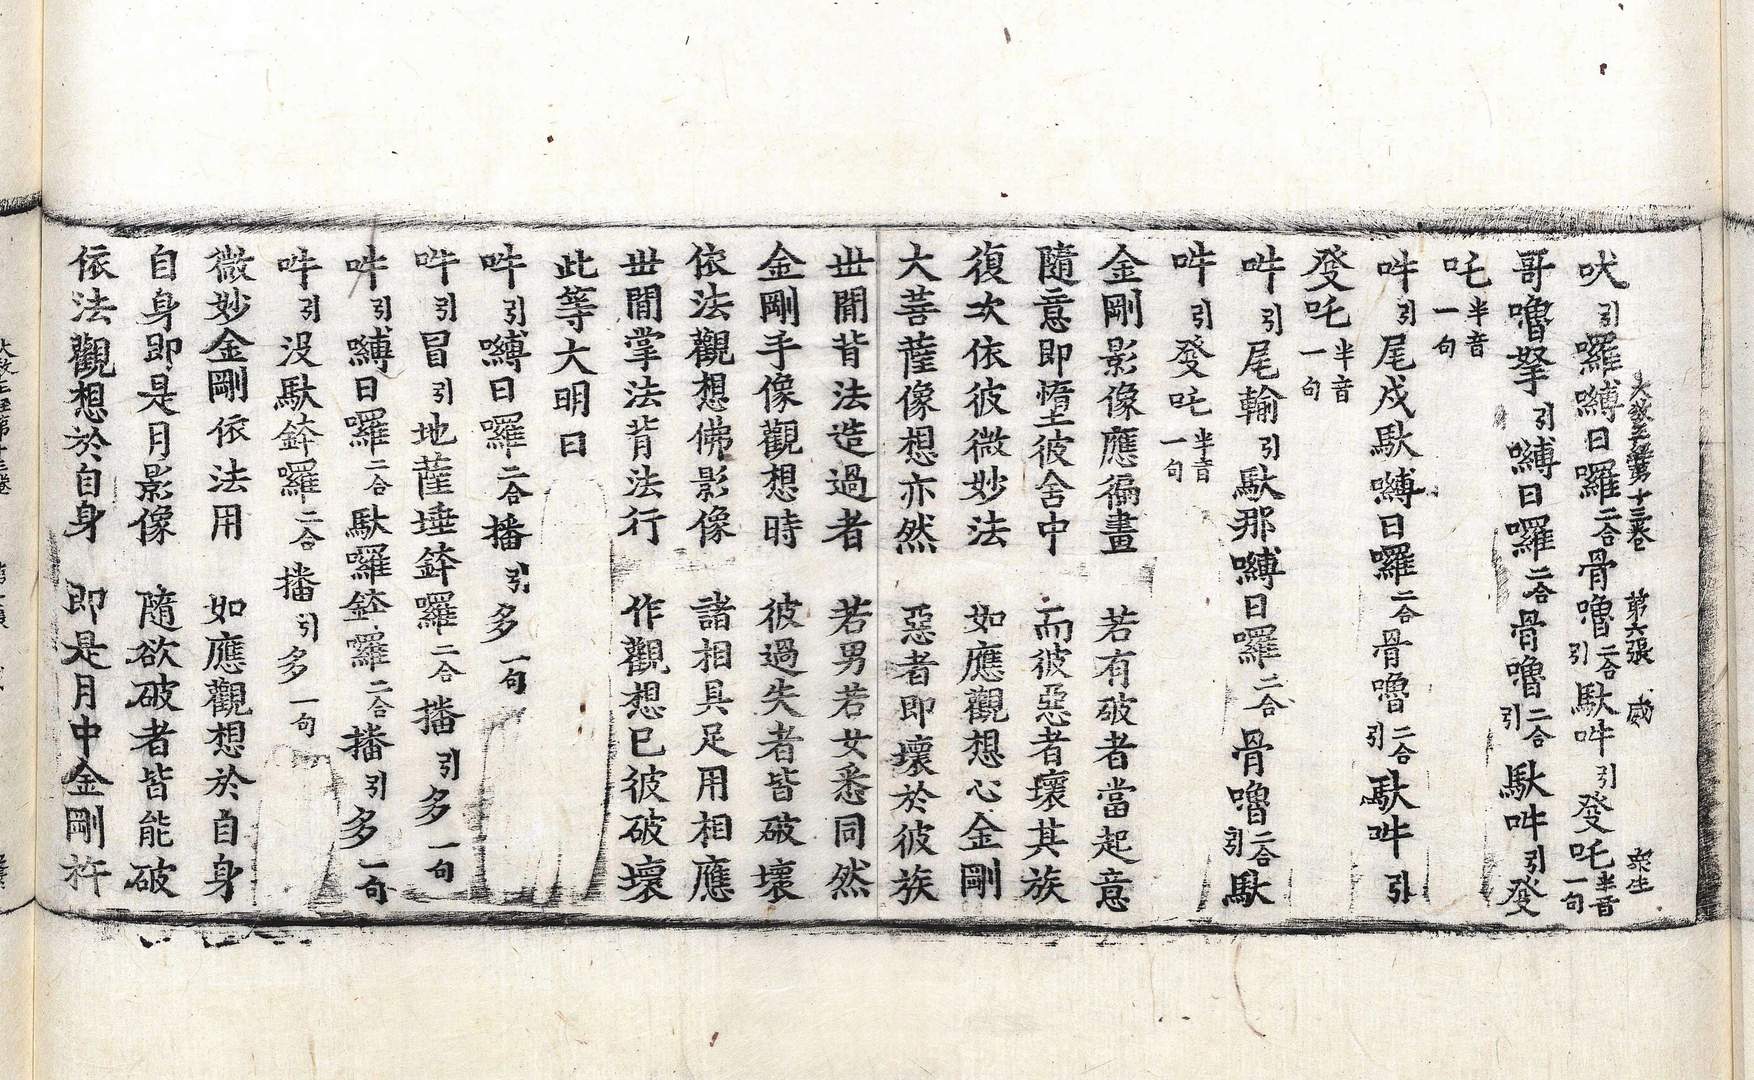 大教王經第十三卷　第六張　咸
吠引囉嚩日囉二合骨嚕二合引馱吽引發吒半音一句
哥嚕拏引嚩日囉二合骨嚕二合引馱吽引發
吒半音一句
吽引尾戍馱嚩日囉二合骨嚕二合引馱吽引
發吒半音一句
吽引尾輸引馱那嚩日囉二合骨嚕二合引馱
吽引發吒半音一句
金剛影像應徧畫　若有破者當起意
隨意即墮彼舍中　而彼惡者壞其族
復次依彼微妙法　如應觀想心金剛
大菩薩像想亦然　惡者即壞於彼族
世間背法造過者　若男若女悉同然
金剛手像觀想時　彼過失者皆破壞
依法觀想佛影像　諸相具足用相應
世間掌法背法行　作觀想已彼破壞
此等大明曰
吽引嚩日囉二合播引多一句
吽引冒引地薩埵鉢囉二合播引多一句
吽引嚩日囉二合馱囉鉢囉二合播引多一句
吽引没馱鉢囉二合播引多一句
微妙金剛依法用　如應觀想於自身
自身即是月影像　隨欲破者皆能破
依法觀想於自身　即是月中金剛杵